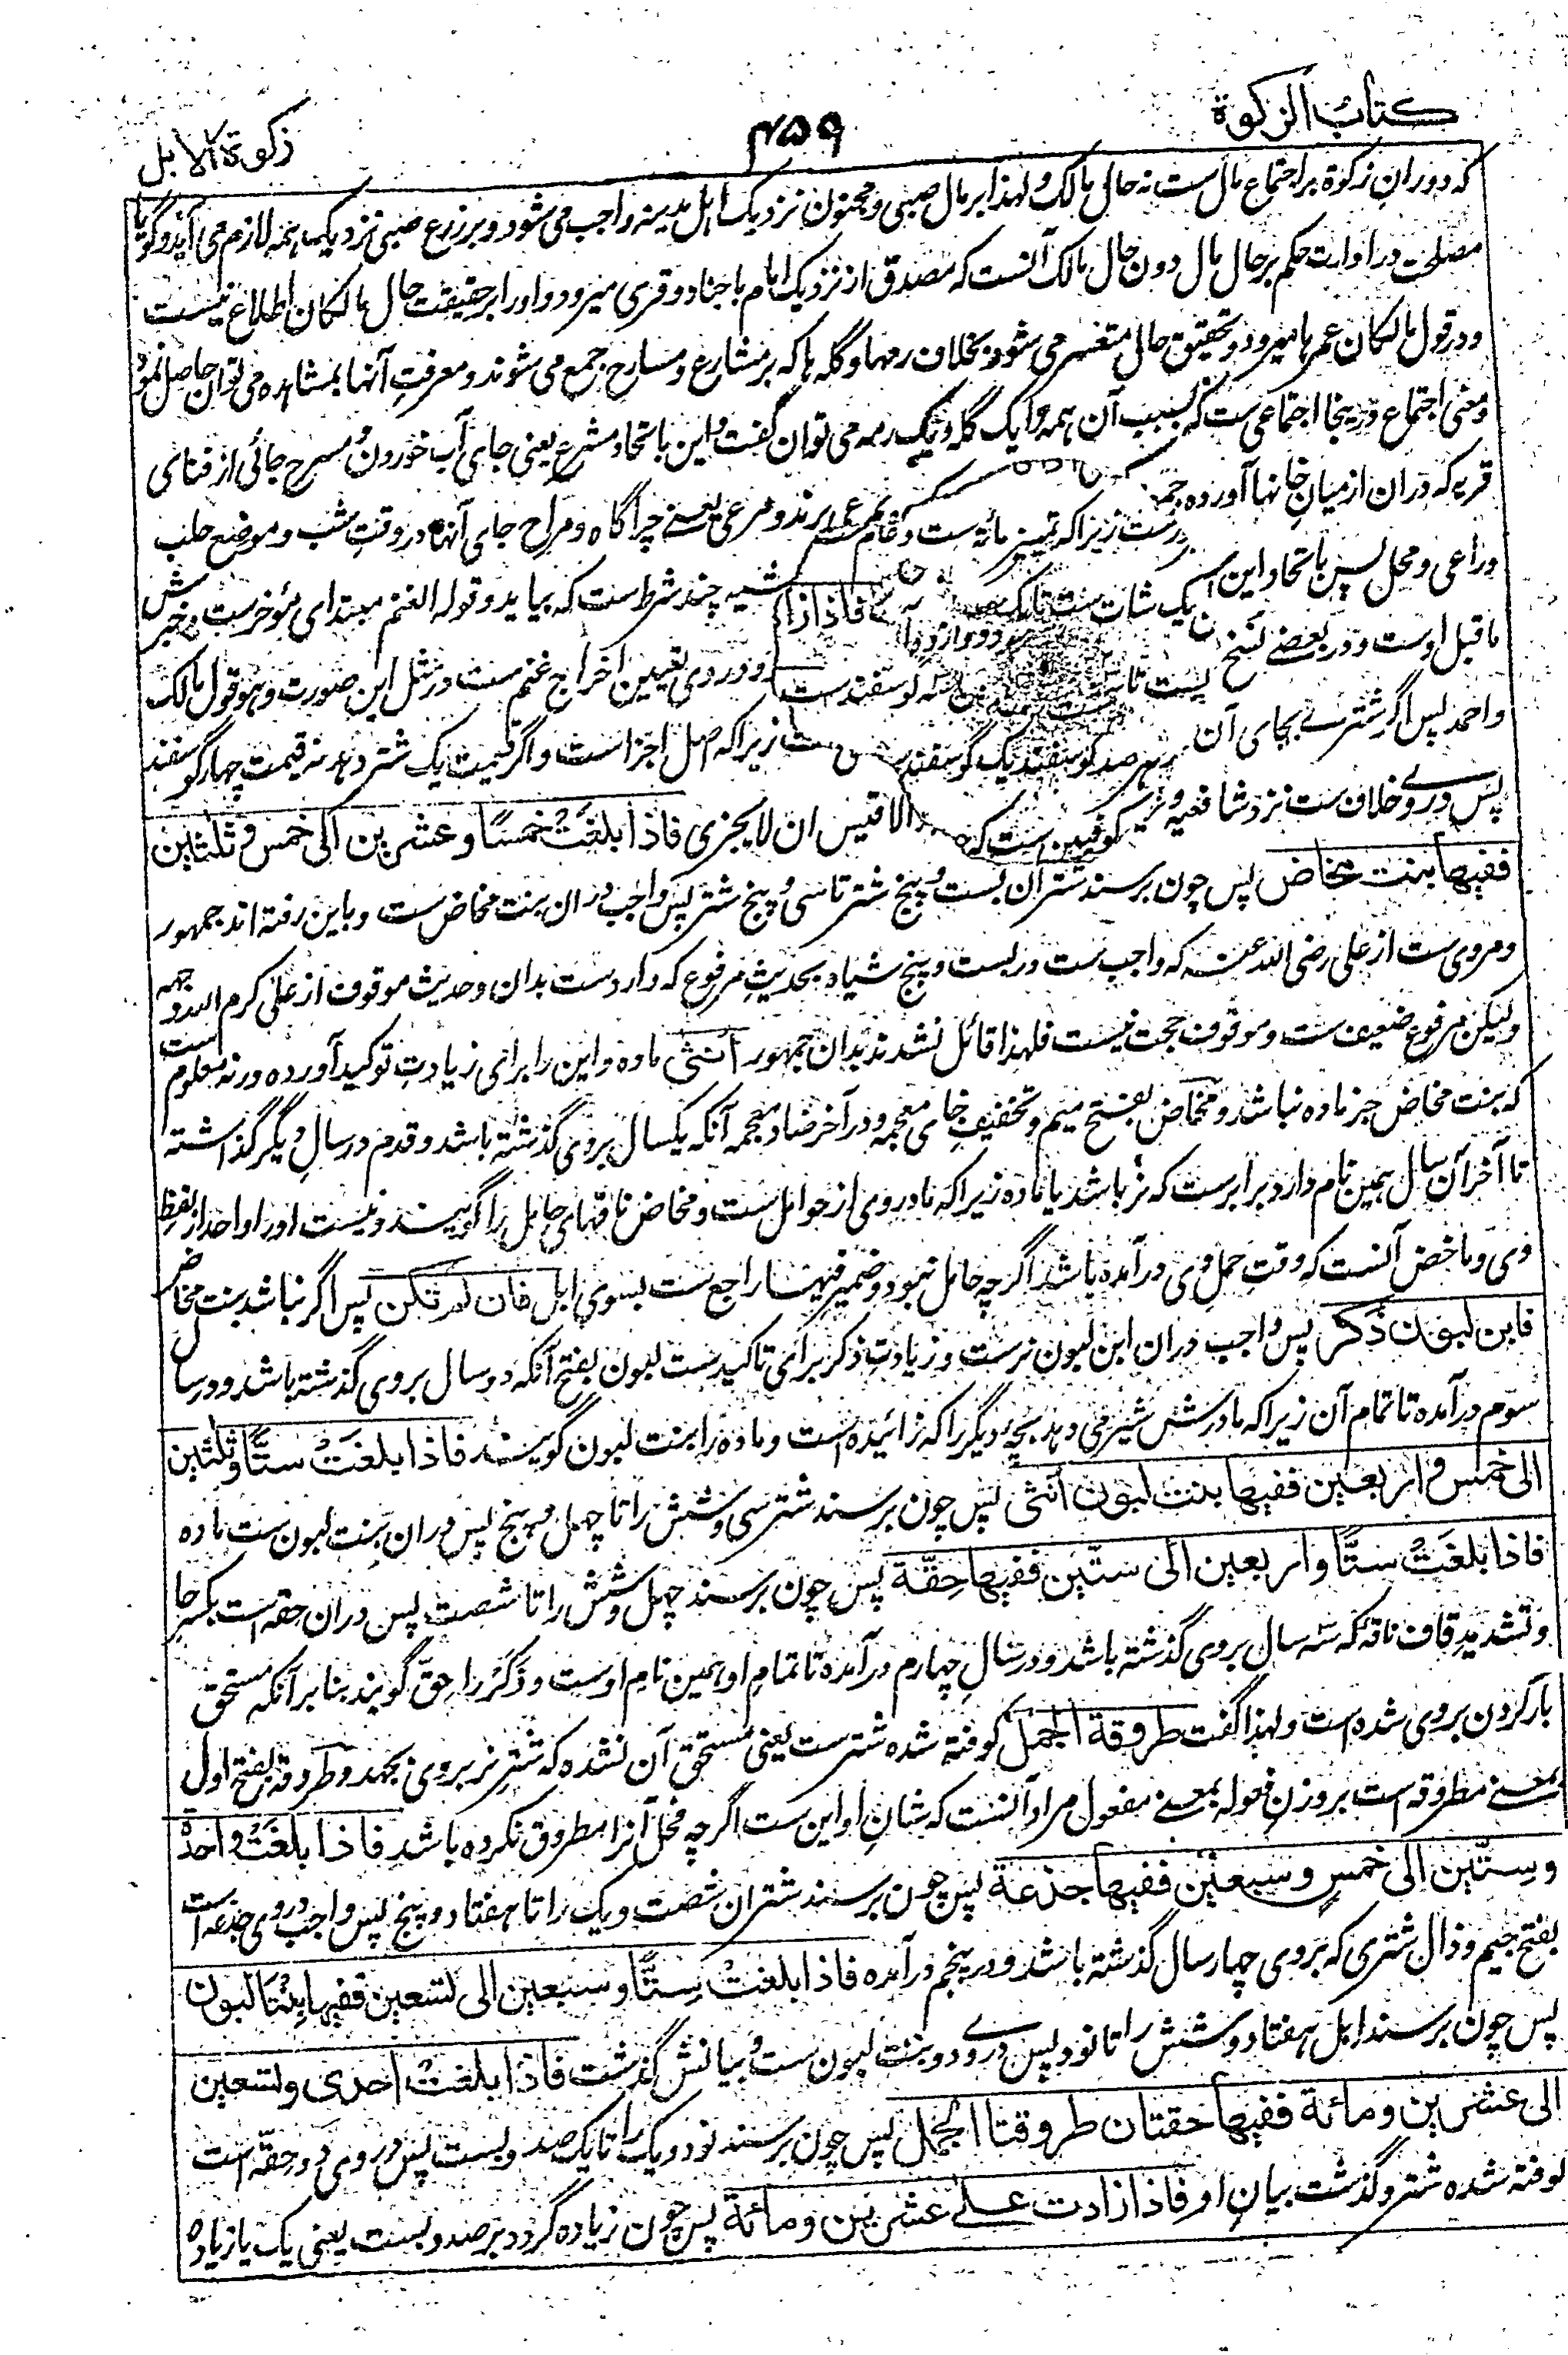 کتاب الزکوة
۴۵۹
زکوة الابل
که دوران زکوة بر اجتماع مال ست نه حال مالک ولهذا بر مال صبی ومجنون نزدیک اهل مدینه واجب می شود وبر زرع صبی نزدیک همه لازم می آید وگویا
مصلحت در ادارت حکم بر حال مال دون حال مالک آنست که مصدق از نزدیک امام باجناد وقری میرود واورا بر حقیقت حال مالکان اطلاع نیست
ودر قول مالکان عمرها میرود وتحقیق حال متعسر می شود بخلاف رمها وگله ها که بر مشارع ومسارح جمع می شوند ومعرفت آنها بمشاهده می توان حاصل نمود
ومعنی اجتماع درینجا اجتماعی ست که بسبب آن همه را یک گله ویک رمه می توان گفت واین باتحاد مشرع یعنی جای آب خوردن ومسرح جائی از فنای
قریه که دران از میان خانها آورده جمع برند ومرعی یعنی چراگاه ومراح جای آنها در وقت شب وموضع حلب
وراعی ومحل پس باتحاد این شیه چند شرط ست که بیاید وقوله الغنم مبتدای مؤخرست وخبرش
ماقبل اوست ودر بعضے نسخ ودر وی تعیین اخراج غنم ست در مثل این صورت وهو قول مالک
واحمد پس اگر شترے بجای آن زیراکه اصل اجزا است واگر قیمت یک شتر دهد نه قیمت چهار گوسفند
پس دروے خلاف ست نزد شافعیه و الاقیس ان لا یجزی فاذا بلغت خمسًا وعشرین الی خمس وثلثین
ففیها بنت مخاض پس چون برسند شتران بست وپنج شتر تاسی وپنج شتر پس واجب دران بنت مخاض ست وباین رفته اند جمهور
ومروی ست از علی رضی الله عنه که واجب ست در بست وپنج شیاه بحدیث مرفوع که وارد ست بدان وحدیث موقوف از علی کرم الله وجهه
ولیکن مرفوع ضعیف ست وموقوف حجت نیست فلهذا قائل نشدند بدان جمهور انثی ماده واین را برای زیادت توکید آورده ورنه معلوم است
که بنت مخاض جز ماده نباشد ومخاض بفتح میم وتخفیف خای معجمه ودر آخر ضاد معجمه آنکه یکسال بروی گذشته باشد وقدم در سال دیگر گذاشته
تا آخر آن سال همین نام دارد برابرست که نر باشد یا ماده زیراکه مادر وی از حوامل ست ومخاض ناقهای حامل را گویند ونیست اورا واحد از لفظ
وی وماخض آنست که وقت حمل وی درآمده باشد اگرچه حامل نبود وضمیر فیها راجع ست بسوی ابل فان لم تکن پس اگر نباشد بنت مخاض
فابن لبون ذکر پس واجب دران ابن لبون نرست وزیادت ذکر برای تاکیدست لبون بفتح آنکه دو سال بروی گذشته باشد ودر سال
سوم درآمده تا تمام آن زیراکه مادرش شیر می دهد بچه دیگر را که زائیده است وماده را بنت لبون گویند فاذا بلغت ستًّا وثلثین
الی خمس واربعین ففیها بنت لبون انثی پس چون برسند شتر سی وشش را تا چهل وپنج پس دران بنت لبون ست ماده
فاذا بلغت ستًّا واربعین الی ستّین ففیها حِقّة پس چون برسند چهل وشش را تا شصت پس دران حقه است بکسر حا
وتشدید قاف ناقه که سه سال بروی گذشته باشد ودر سال چهارم درآمده تا تمام او همین نام اوست وذَکَر را حِقّ گویند بنا بر آنکه مستحق
بار کردن بروی شده است ولهذا گفت طروقة الجمل کوفته شده شترست یعنی مستحق آن شده که شتر نر بروی بجهد وطروقه بفتح اول
بمعنے مطروقه است بروزن فعوله بمعنے مفعول مراد آنست که شان او این ست اگرچه فحل آنرا مطروق نکرده باشد فاذا بلغت واحدة
وستّین الی خمس وسبعین ففیها جذعة پس چون برسند شتران شصت ویک را تا هفتاد وپنج پس واجب دروی جذعه است
بفتح جیم وذال شتری که بروی چهار سال گذشته باشد ودر پنجم درآمده فاذا بلغت ستًّا وسبعین الی تسعین ففیها بنتا لبون
پس چون برسند ابل هفتاد وشش را تا نود پس دروے دو بنت لبون ست وبیانش گذشت فاذا بلغت احدی وتسعین
الی عشرین ومائة ففیها حقتان طروقتا الجمل پس چون برسند نود ویک را تا یک صد وبست پس دروی دو حِقّه است
کوفته شده شتر وگذشت بیان او فاذا زادت علے عشرین ومائة پس چون زیاده گردد بر صد وبست یعنی یک یا زیاده